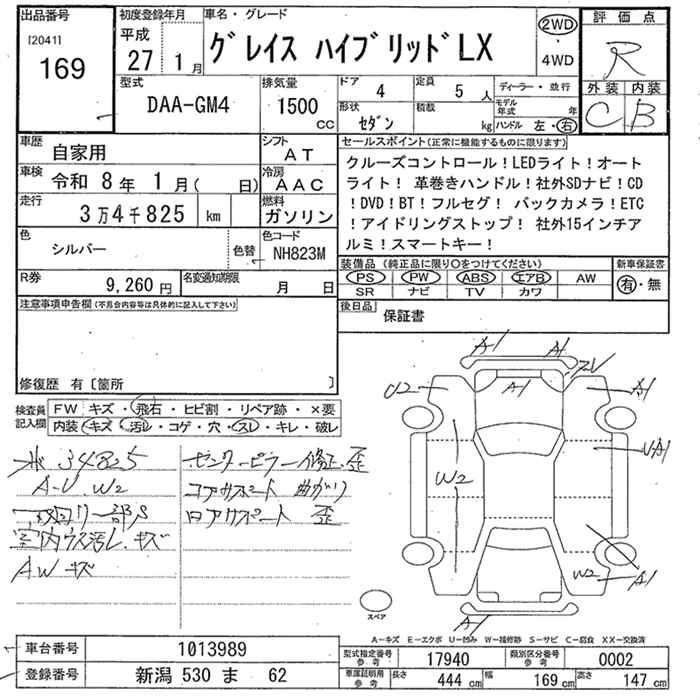 出品番号 初度登録年月 車名・グレード 評価点
[2041]
169
平成 27 1月
グレイス ハイブリッドLX
2WD
・
4WD
R
型式 排気量 ドア 4 定員 5 人 ディーラー・並行 外装 内装
DAA-GM4 1500 CC 形状 セダン 積載 kg モデル年式 年 C B
ハンドル 左・右
車歴 自家用 シフト AT セールスポイント(正常に機能するものに限ります)
車検 令和 8年 1月( 日) 冷房 AAC
走行 3万4千825 km 燃料 ガソリン
クルーズコントロール!LEDライト!オート
ライト! 革巻きハンドル!社外SDナビ!CD
!DVD!BT!フルセグ! バックカメラ!ETC
!アイドリングストップ! 社外15インチア
ルミ!スマートキー!
色 シルバー 色替 色コード NH823M
装備品(純正品に限り○をつけてください) 新車保証書
R券 9,260円 名変通知期限 月 日
PS PW ABS エアB AW 有・無
SR ナビ TV カワ
注意事項申告欄(不具合内容等は具体的に記入して下さい)
後日品 保証書
修復歴 有〔箇所 〕
検査員 記入欄
FW キズ・飛石・ヒビ割・リペア跡・×要
内装 キズ・汚レ・コゲ・穴・スレ・キレ・破レ
34825
A-U.W2
室内ウス汚レ.キズ
AWキズ
センターピラー修正.歪
コアサポート 曲がり
ロアサポート 歪
A1 A1
U2 A1 A1
W2 UA1
W2 A1
A1
スペア
A-キズ E-エクボ U-凹み W-補修跡 S-サビ C-腐食 XX-交換済
車台番号 1013989
登録番号 新潟 530 ま 62
型式指定番号 参考 17940 類別区分番号 参考 0002
車庫証明用 参考 長さ 444 cm 幅 169 cm 高さ 147 cm